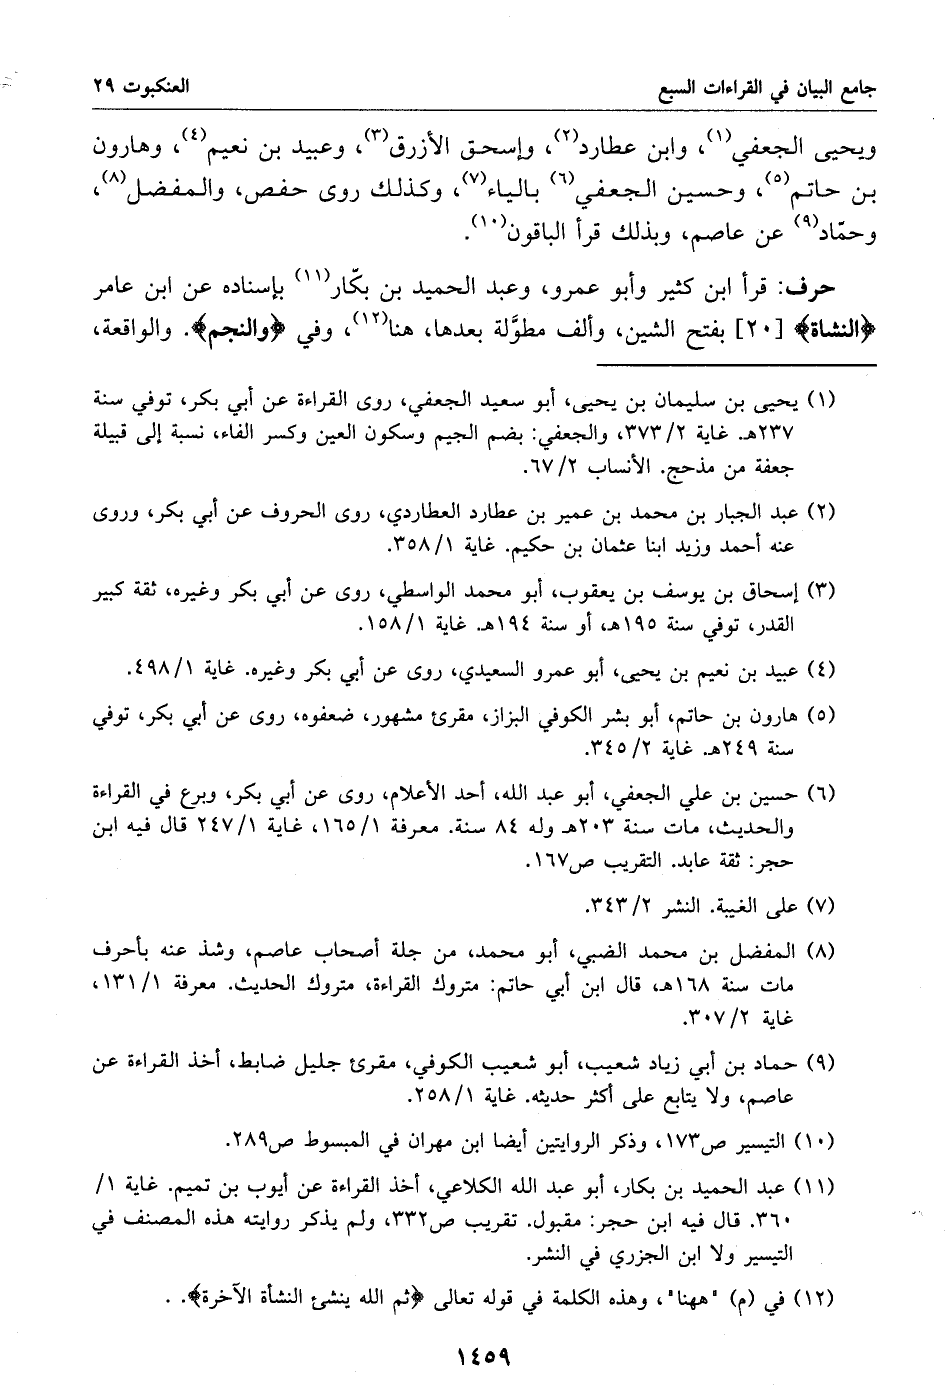 جامع البيان في القراءات السبع
العنكبوت ٢٩
ويحيى الجعفي(١)، وابن عطارد(٢)، وإسحق الأزرق(٣)، وعبيد بن نعيم(٤)، وهارون
بن حاتم(٥)، وحسين الجعفي(٦) بالياء(٧)، وكذلك روى حفص، والمفضل(٨)،
وحمّاد(٩) عن عاصم، وبذلك قرأ الباقون(١٠).
حرف: قرأ ابن كثير وأبو عمرو، وعبد الحميد بن بكّار(١١) بإسناده عن ابن عامر
﴿النشاة﴾ [٢٠] بفتح الشين، وألف مطوَّلة بعدها، هنا(١٢)، وفي ﴿والنجم﴾. والواقعة،
(١) يحيى بن سليمان بن يحيى، أبو سعيد الجعفي، روى القراءة عن أبي بكر، توفي سنة
٢٣٧هـ. غاية ٣٧٣/٢، والجعفي: بضم الجيم وسكون العين وكسر الفاء، نسبة إلى قبيلة
جعفة من مذحج. الأنساب ٦٧/٢.
(٢) عبد الجبار بن محمد بن عمير بن عطارد العطاردي، روى الحروف عن أبي بكر، وروى
عنه أحمد وزيد ابنا عثمان بن حكيم. غاية ٣٥٨/١.
(٣) إسحاق بن يوسف بن يعقوب، أبو محمد الواسطي، روى عن أبي بكر وغيره، ثقة كبير
القدر، توفي سنة ١٩٥هـ، أو سنة ١٩٤هـ. غاية ١٥٨/١.
(٤) عبيد بن نعيم بن يحيى، أبو عمرو السعيدي، روى عن أبي بكر وغيره. غاية ٤٩٨/١.
(٥) هارون بن حاتم، أبو بشر الكوفي البزاز، مقرئ مشهور، ضعفوه، روى عن أبي بكر، توفي
سنة ٢٤٩هـ. غاية ٣٤٥/٢.
(٦) حسين بن علي الجعفي، أبو عبد الله، أحد الأعلام، روى عن أبي بكر، وبرع في القراءة
والحديث، مات سنة ٢٠٣هـ وله ٨٤ سنة. معرفة ١٦٥/١، غاية ٢٤٧/١ قال فيه ابن
حجر: ثقة عابد. التقريب ص١٦٧.
(٧) على الغيبة. النشر ٣٤٣/٢.
(٨) المفضل بن محمد الضبي، أبو محمد، من جلة أصحاب عاصم، وشذ عنه بأحرف
مات سنة ١٦٨هـ، قال ابن أبي حاتم: متروك القراءة، متروك الحديث. معرفة ١٣١/١،
غاية ٣٠٧/٢.
(٩) حماد بن أبي زياد شعيب، أبو شعيب الكوفي، مقرئ جليل ضابط، أخذ القراءة عن
عاصم، ولا يتابع على أكثر حديثه. غاية ٢٥٨/١.
(١٠) التيسير ص١٧٣، وذكر الروايتين أيضا ابن مهران في المبسوط ص٢٨٩.
(١١) عبد الحميد بن بكار، أبو عبد الله الكلاعي، أخذ القراءة عن أيوب بن تميم. غاية ١/
٣٦٠. قال فيه ابن حجر: مقبول. تقريب ص٣٣٢، ولم يذكر روايته هذه المصنف في
التيسير ولا ابن الجزري في النشر.
(١٢) في (م) "ههنا"، وهذه الكلمة في قوله تعالى ﴿ثم الله ينشئ النشأة الآخرة﴾. .
١٤٥٩